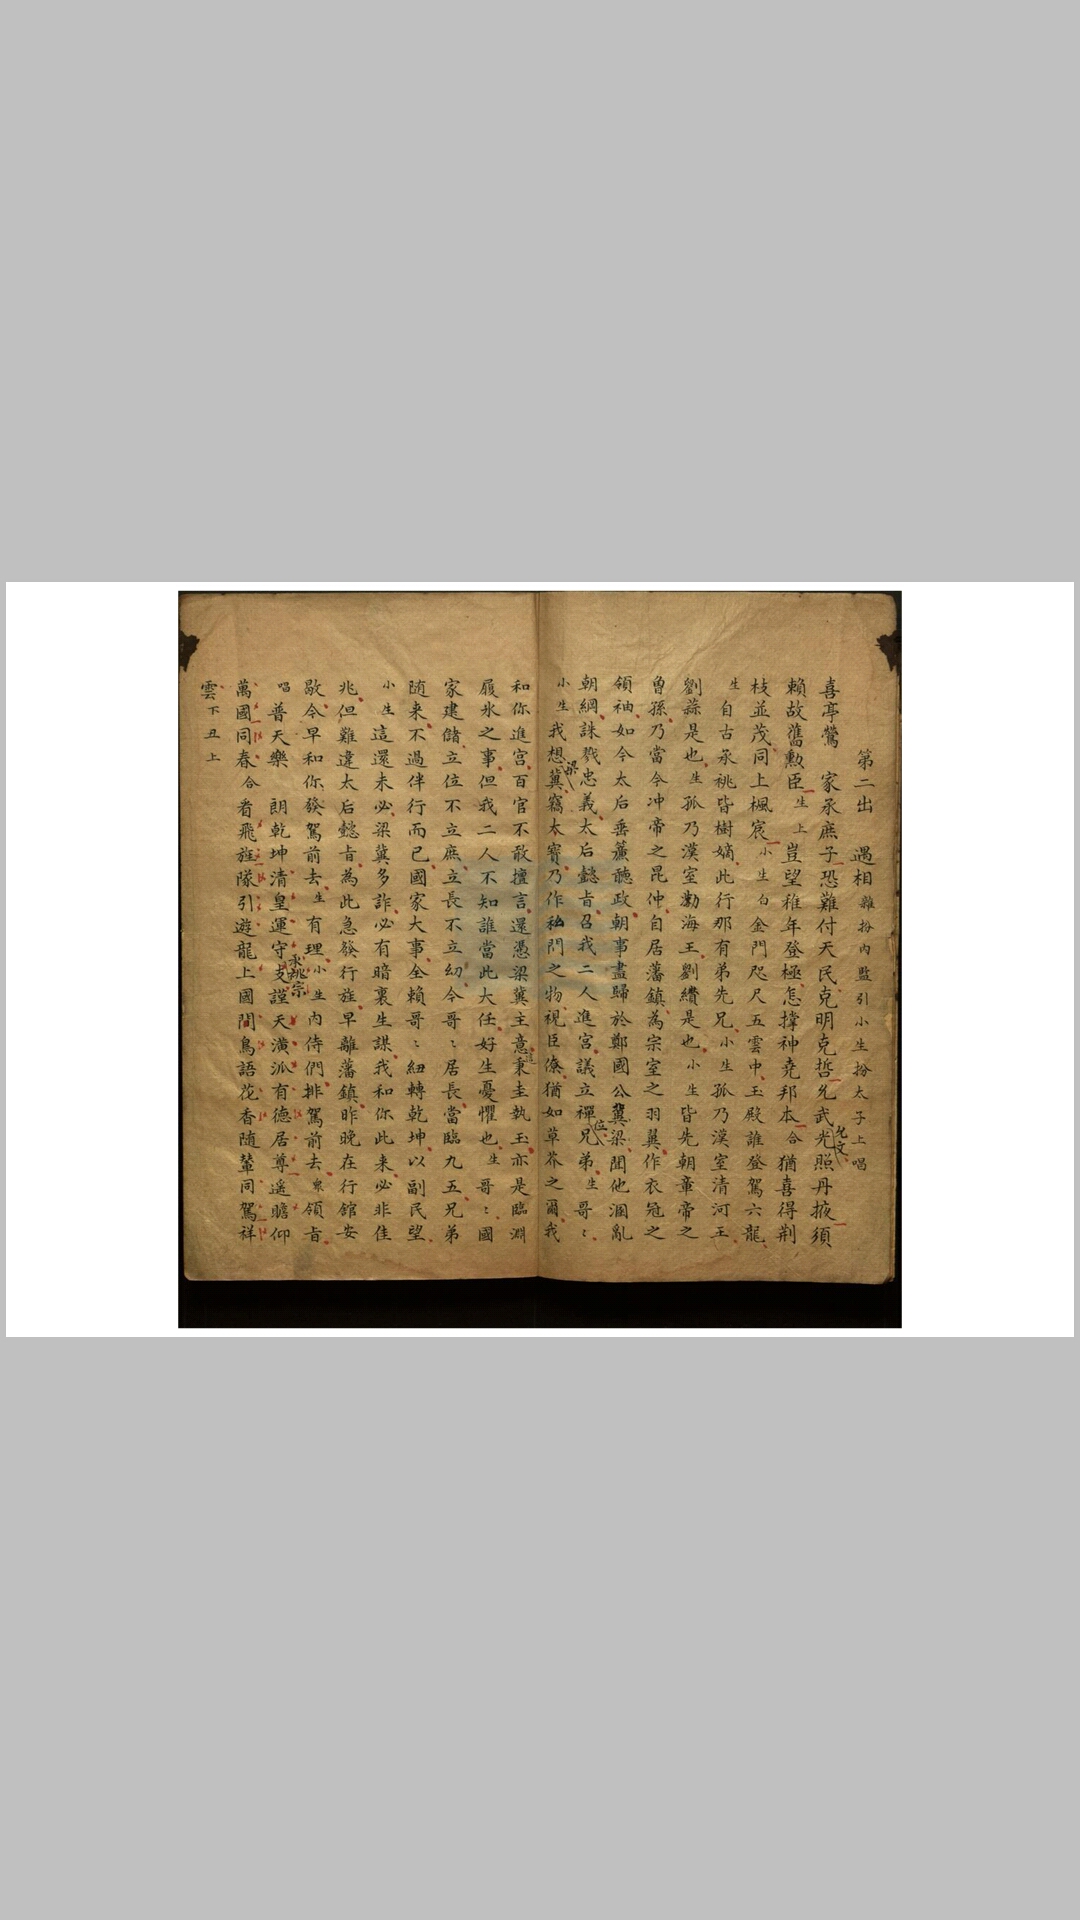 第二出　遇相　雜扮內監引小生扮太子上唱
喜亭鶯　家承庶子恐難付天民克明克哲允武允文光照丹掖須
賴故舊勲臣生上豈望稚年登極怎撑神堯邦本合猶喜得荆
枝並茂同上楓宸小生白金門咫尺五雲中玉殿誰登駕六龍
生自古承祧皆樹嫡此行那有弟先兄小生孤乃漢室清河王
劉蒜是也生孤乃漢室勃海王劉纘是也小生皆先朝章帝之
曽孫乃當今冲帝之昆仲自居藩鎮為宗室之羽翼作衣冠之
領袖如今太后垂簾聽政朝事盡歸於鄭國公梁冀聞他溷亂
朝綱誅戮忠義太后懿旨召我二人進宮議立禪位兄弟生哥〻
小生我想梁冀竊太寳乃作私門之物視臣僚猶如草芥之爾我
和你進宮百官不敢擅言還憑梁冀主意秉圭執玉亦是臨淵
履氷之事但我二人不知誰當此大任好生憂懼也生哥〻國
家建儲立位不立庶立長不立幼今哥〻居長當臨九五兄弟
随来不過伴行而已國家大事全賴哥〻紐轉乾坤以副民望
小生這還未必梁冀多詐必有暗裏生謀我和你此来必非佳
兆但難違太后懿旨為此急發行旌早離藩鎮昨晚在行舘安
歇今早和你發駕前去生有理小生內侍們排駕前去衆領旨
唱普天樂　朗乾坤清皇運守支承祧宗謹天潢派有德居尊遥瞻仰
萬國同春合看飛旌隊引遊龍上國聞鳥語花香随輦同駕祥
雲下丑上